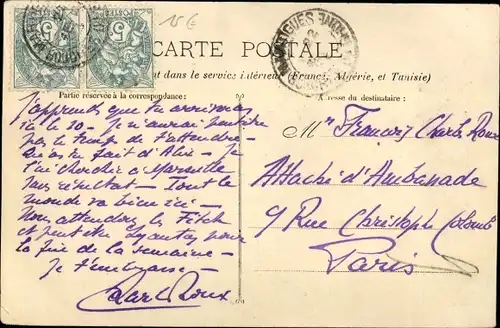 15 €
CARTE POSTALE
ant dans le service intérieur (France, Algérie, et Tunisie)
Partie réservée à la correspondance:
Adresse du destinataire:
5
5
POSTES
MARTIGUES
RHONE
J'apprends que tu arriveras
ici le 10 - Je n'aurai peut-être
pas le temps de t'attendre -
Qu'as tu fait d'Alix - Je
l'ai cherchée à Marseille
sans résultat - Tout le
monde va bien ici -
Nous attendons les Fitch
et peut être pour
la fin de la semaine -
Je t'embrasse -
Carl Roux
Mr François Charles Roux
Attaché d'Ambassade
9 Rue Christophe Colomb
Paris